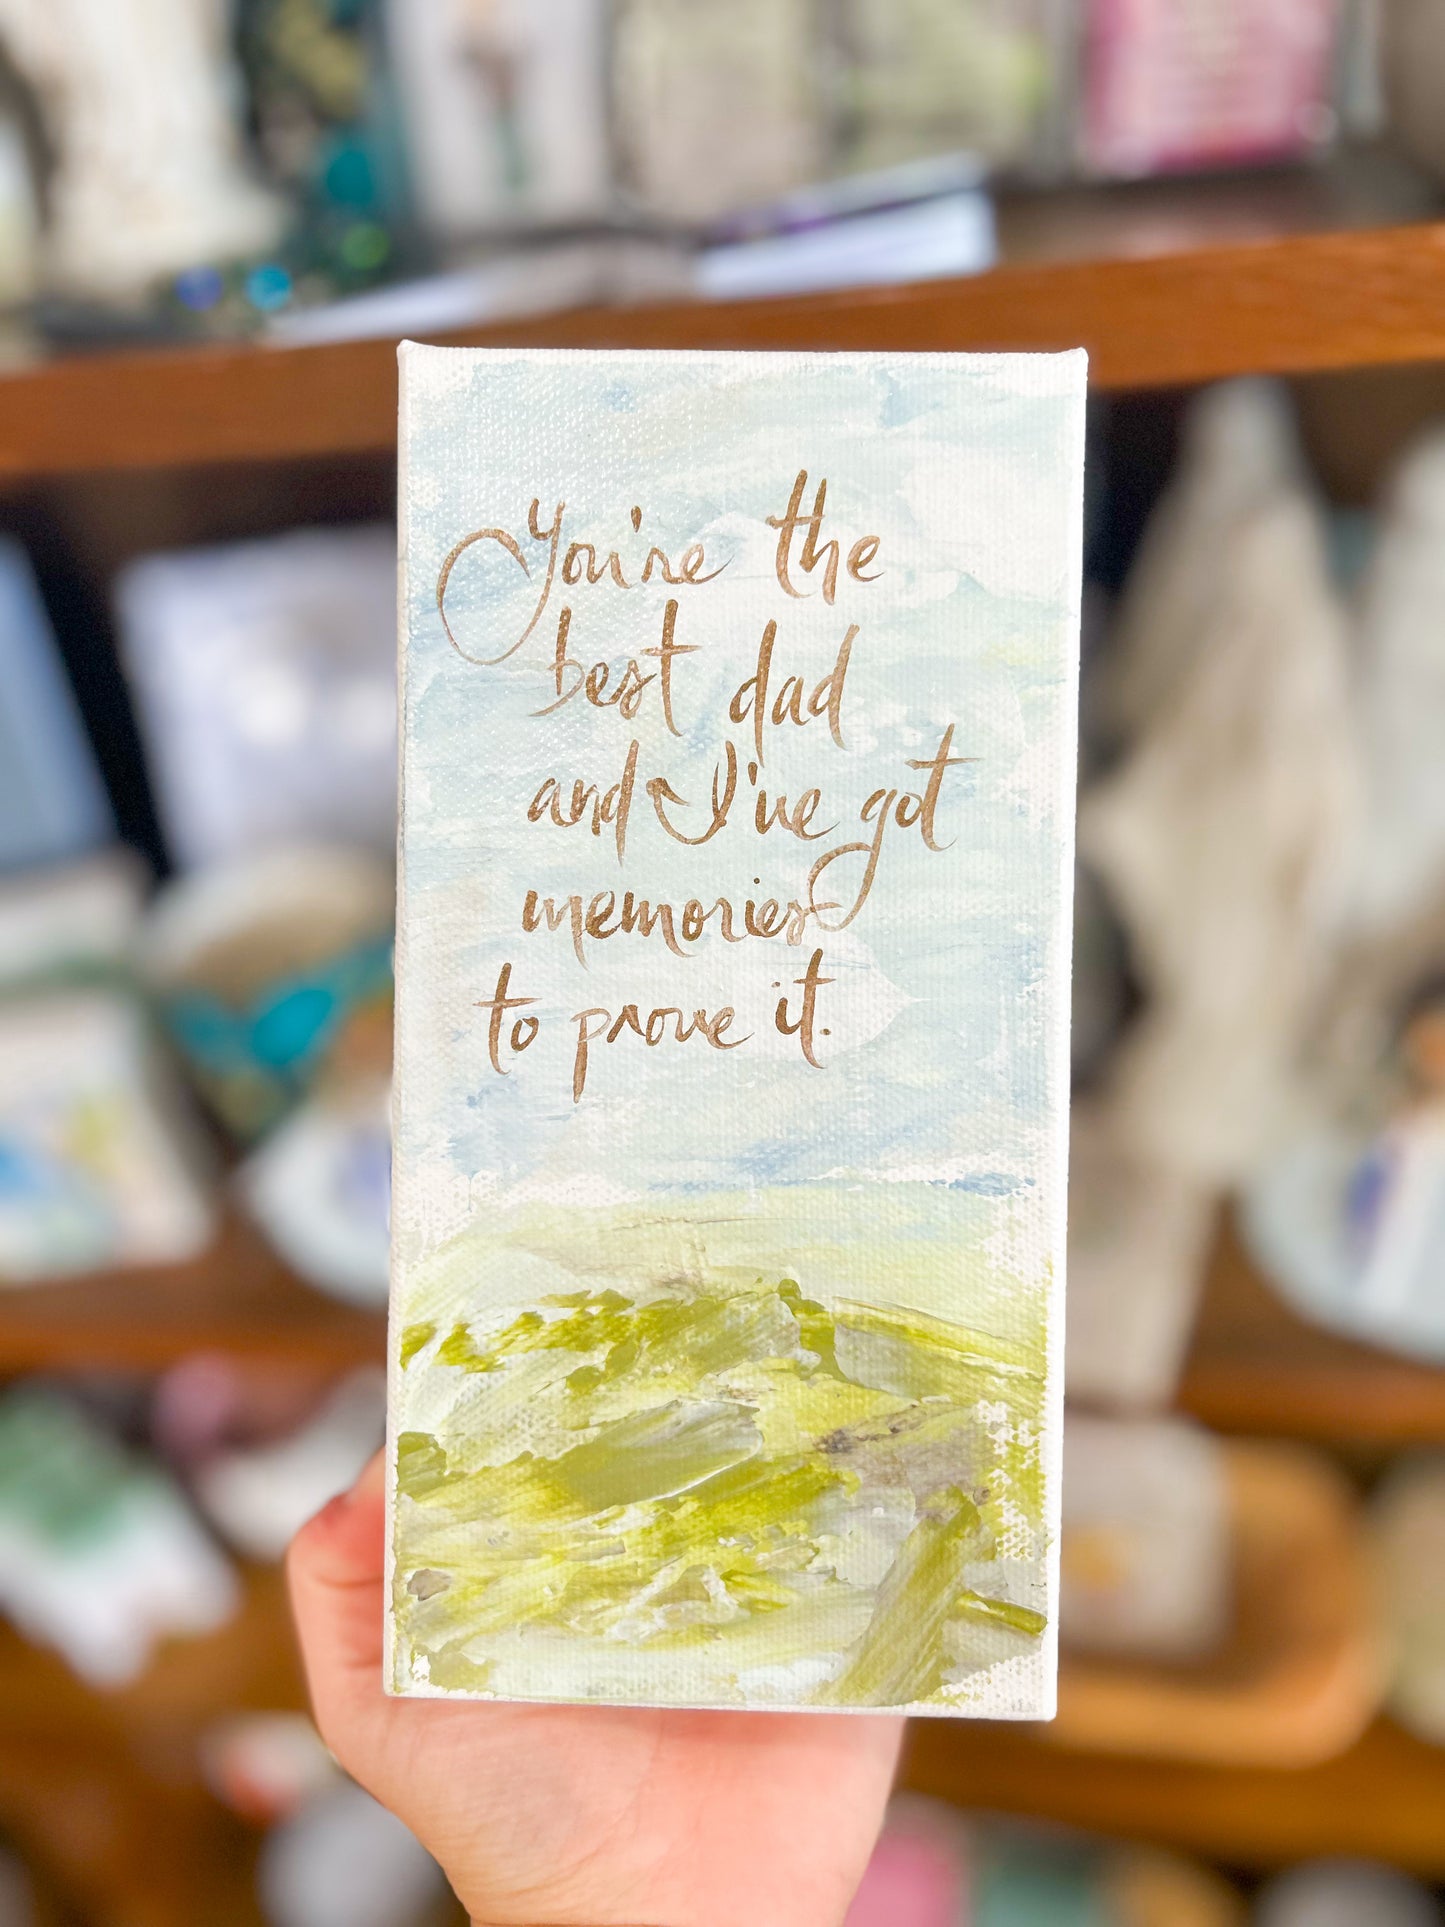 You're the
best dad
and I've got
memories
to prove it.